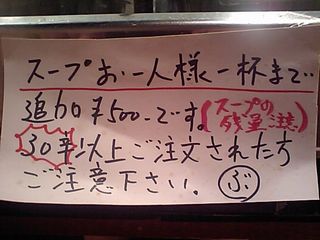 スープお一人様一杯まで
追加¥500-です。(スープの残量注意)
30辛以上ご注文された方
ご注意下さい。ぶ